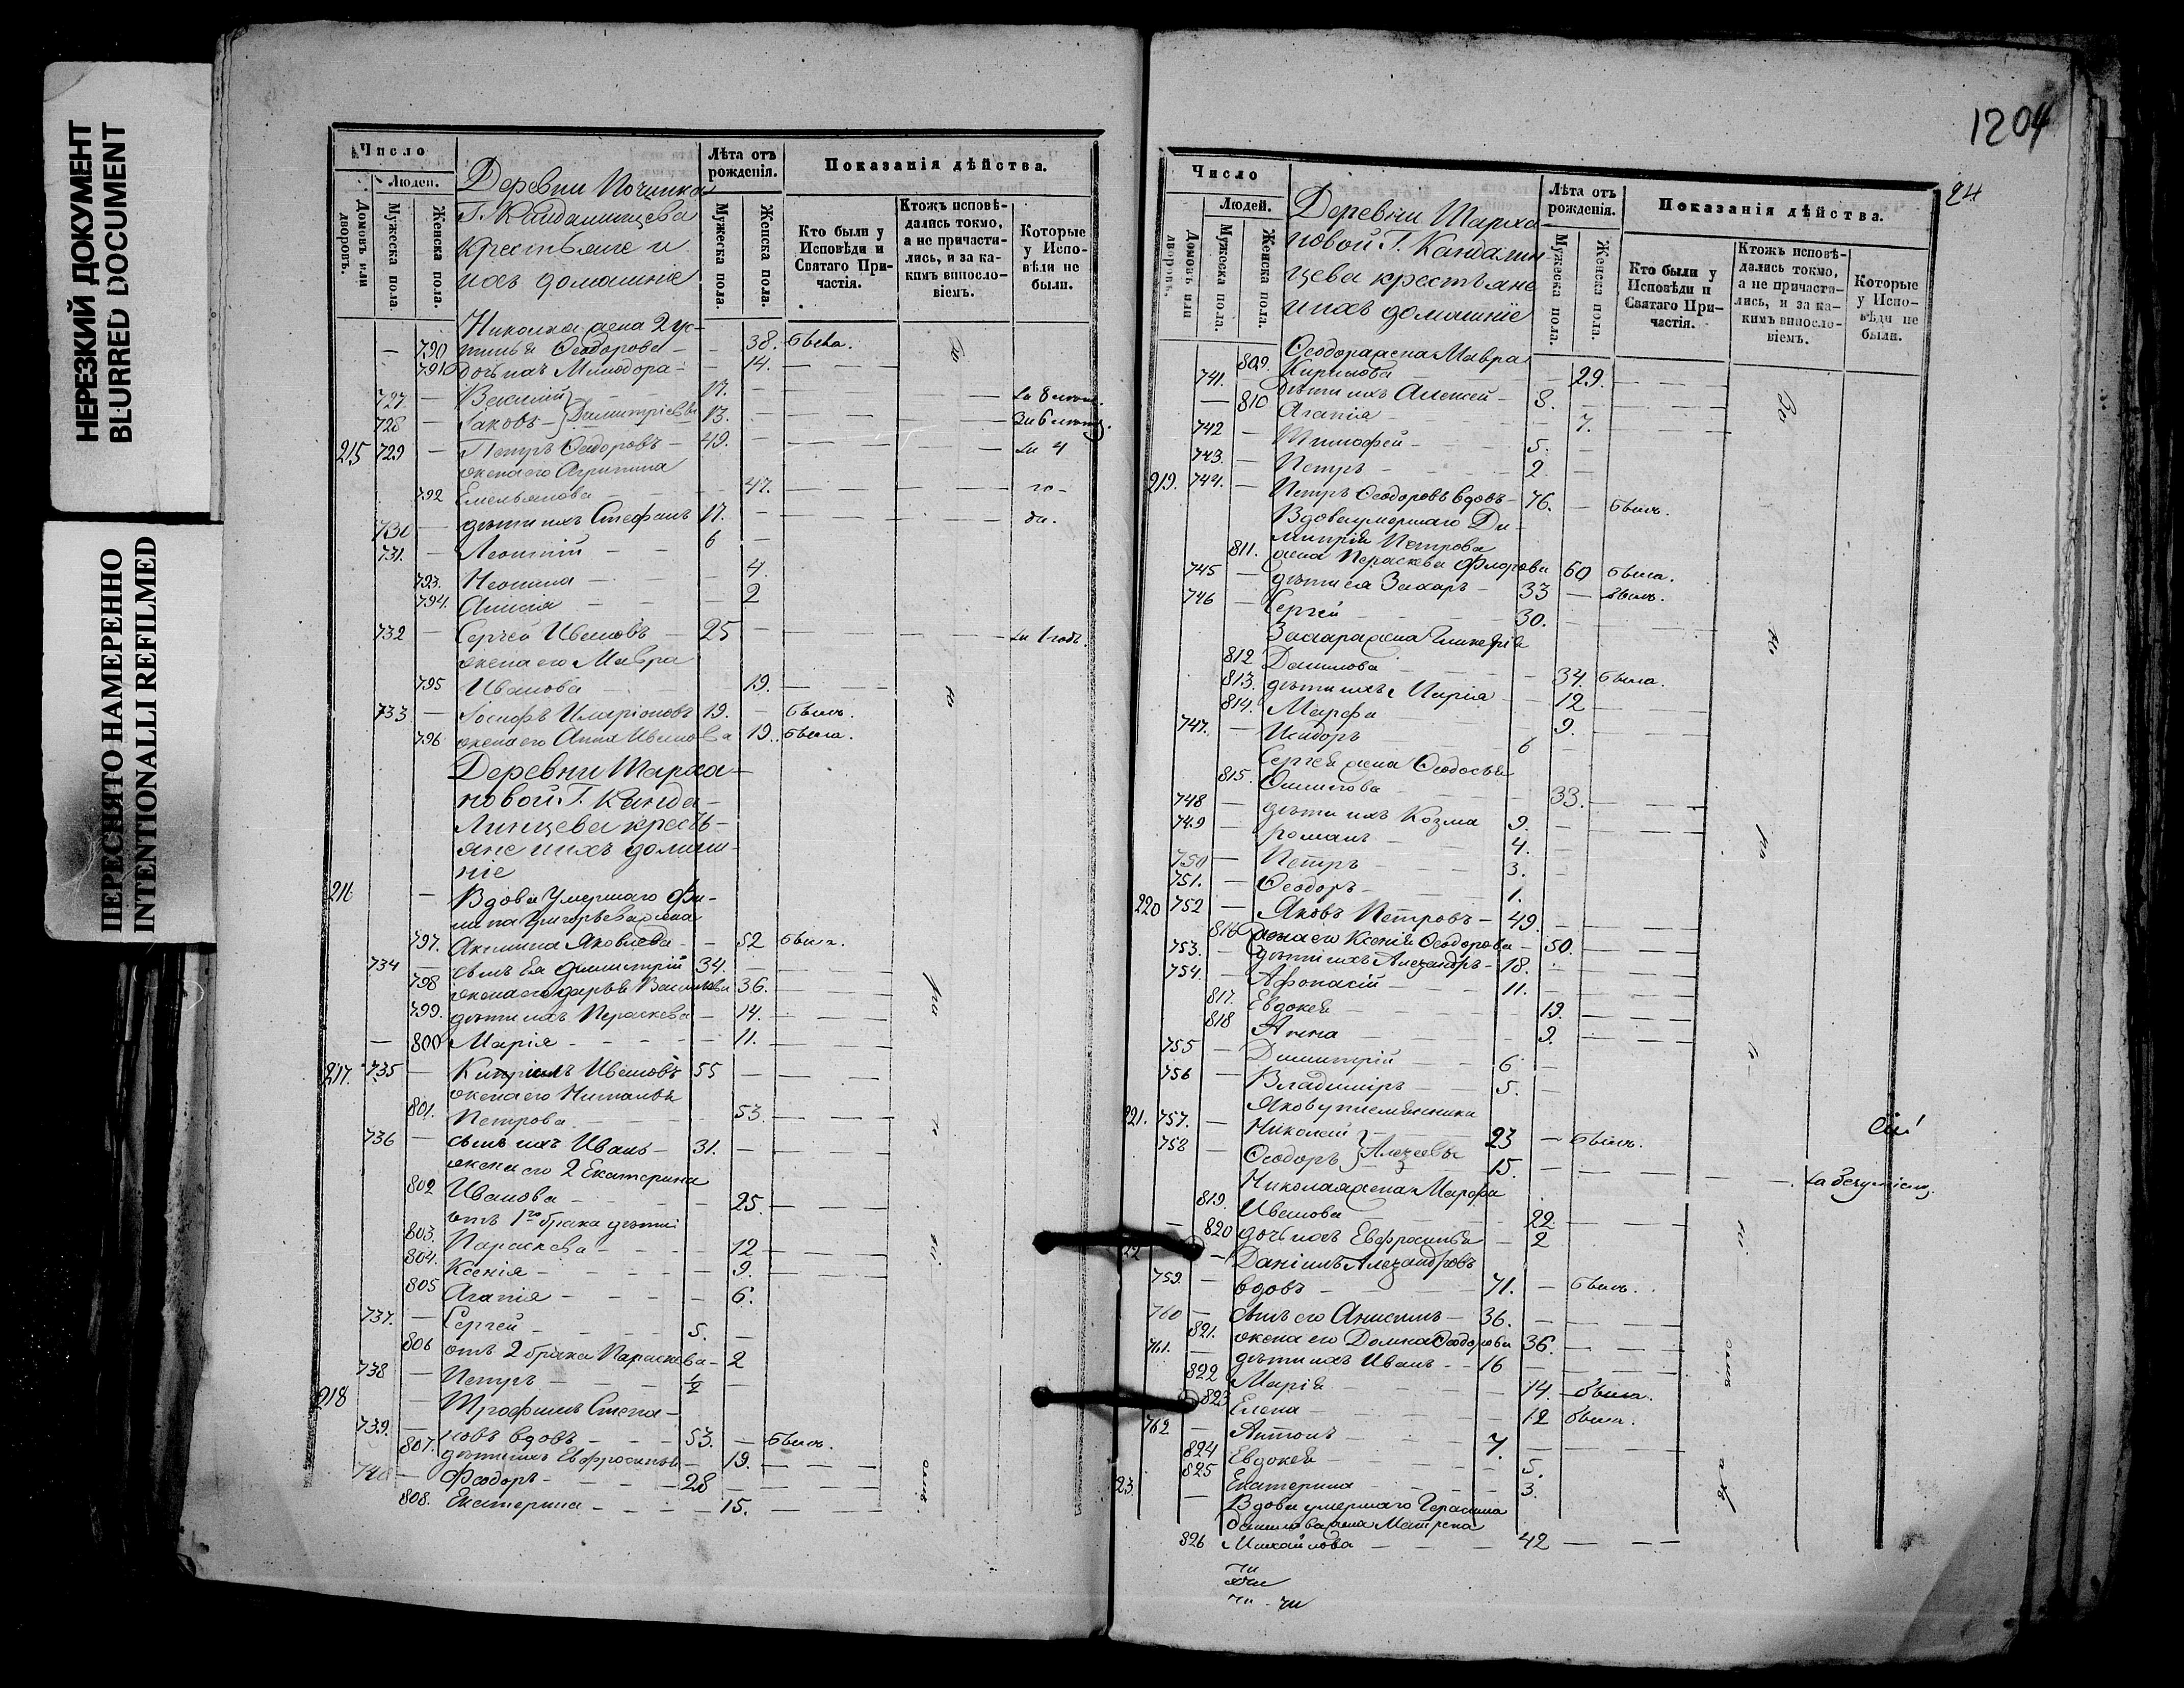 НЕРЕЗКИЙ ДОКУМЕНТ
BLURRED DOCUMENT
ПЕРЕСНЯТО НАМЕРЕННО
INTENTIONALLI REFILMED
Число
Людей.
Домовъ или дворовъ.
Мужеска пола
Женска пола.
Деревни Починка
Г. Кандалинцева
крестьяне и
ихъ домашніе
Лѣта отъ рожденія.
Мужеска пола.
Женска пола.
Показанія дѣйства.
Кто были у Исповѣди и Святаго Причастія.
Ктожъ исповѣдались токмо, а не причастились, и за какимъ винословіемъ.
Которые у Исповѣди не были.
Николая жена 2 Ус-
790 тинья Ѳеодорова 38. была.
791 дочь ихъ Минодора 14.
727 Василій 17.
728 Іаковъ } Димитріевы 13.
215 729 Петръ Ѳеодоровъ 49.
жена его Агрипина
792 Емельянова 47.
дѣти ихъ Стефанъ 17.
731. Леонтій 6
793. Неонила 4.
794. Анисія 2
732 Сергей Ивановъ 25 за 1 годъ.
жена его Мавра
795 Иванова 19.
733 Іосифъ Иларіоновъ 19. былъ.
796 жена его Анна Иванова 19. была.
Деревни Шарха-
новой Г. Канда-
линцева кресть-
яне и ихъ домаш-
ніе
216 Вдова умершаго Фи-
липа Григорьева жена
797. Акилина Яковлева 52 была.
734 сынъ ея Димитрій 34.
798 жена его Дарья Васильева 36.
799. дѣти ихъ Параскева 14.
800 Марія 11.
217. 735 Киприанъ Ивановъ 55
жена его Наталья
801. Петрова 53.
736 сынъ ихъ Иванъ 31.
жена его 2 Екатерина
802 Иванова 25.
отъ 1го брака дѣти
803. Параскева 12
804. Ксенія 9.
805 Агапія 6.
737. Сергей 5.
806 отъ 2 брака Параскева 2
738 Петръ 1/2
218 Трофимъ Степа-
739. новъ вдовъ 53. былъ.
807. дѣти ихъ Евфросинья 19.
740 Ѳеодоръ 28
808. Екатерина 15.
1204
24
Число
Людей.
Домовъ или дворовъ.
Мужеска пола.
Женска пола.
Деревни Шарха-
новой Г. Кандалин-
цева крестьяне
и ихъ домашніе
Лѣта отъ рожденія.
Мужеска пола.
Женска пола.
Показанія дѣйства.
Кто были у Исповѣди и Святаго Причастія.
Ктожъ исповѣдались токмо, а не причастились, и за какимъ винословіемъ.
Которые у Исповѣди не были.
Ѳеодора жена Мавра
809. Кирилова 29.
741. дѣти ихъ Алексей 8.
810 Агапія 7.
742 Тимофей 5.
743. Петръ 2
219. 744. Петръ Ѳеодоровъ вдовъ 76. былъ.
Вдова умершаго Ди-
митрія Петрова
811. жена Параскева Флорова 60 была.
745 дѣти ея Захаръ 33 былъ.
746 Сергей 30.
Захара жена Гликерія
812 Данилова 34. была.
813. дѣти ихъ Марія 12
814. Марфа 9.
747. Исидоръ 6
Сергея жена Ѳеодосья
815. 33.
748 дѣти ихъ Козма 9.
749 Романъ 4.
750 Петръ 3.
751. Ѳеодоръ 1.
220 752 Яковъ Петровъ 49.
816 жена его Ксенія Ѳеодорова 50.
753. дѣти ихъ Александръ 18.
754. Афонасій 11.
817. Евдокея 19.
818 Анна 9.
755 Димитрій 6
756 Владиміръ 5.
Якову племянники
221. 757. Николай 23 былъ.
758 Ѳеодоръ } Алексеевы 15.
Николая жена Марфа
819. Иванова 22.
820 дочь ихъ Евфросинья 2
Даніилъ Александровъ
759. вдовъ 71. былъ.
760 сынъ его Анисимъ 36.
821. жена его Домна Ѳеодорова 36.
761. дѣти ихъ Иванъ 16
822 Марія 14. была.
823 Елена 12 была.
762 Антонъ 7.
824 Евдокея 5.
825 Екатерина 3.
23. Вдова умершаго Герасима
Данилова жена Матрена
826 Михайлова 42